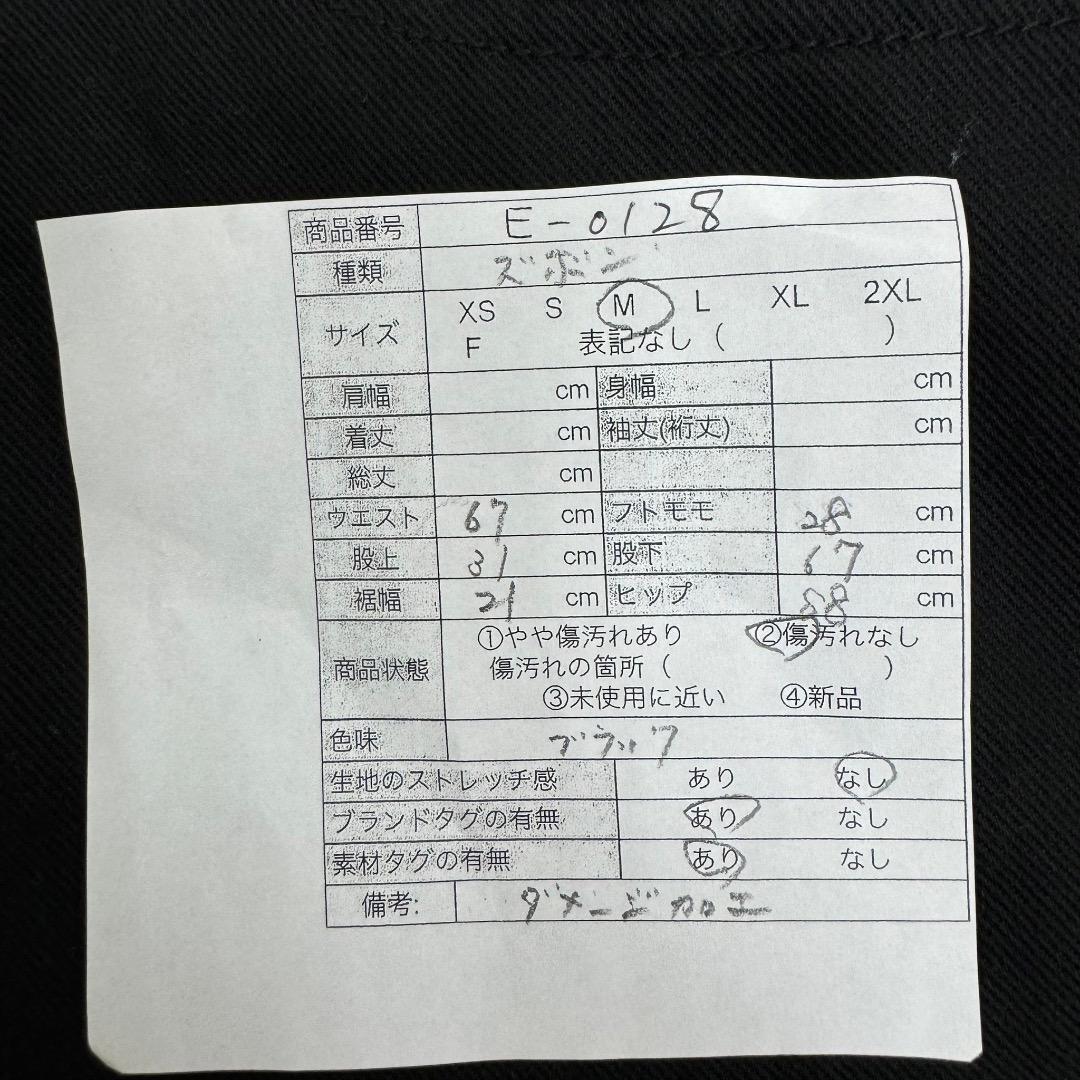 商品番号 E-0128
種類 ズボン
サイズ XS S M L XL 2XL
F 表記なし ( )
肩幅 cm 身幅 cm
着丈 cm 袖丈(裄丈) cm
総丈 cm
ウエスト 67 cm フトモモ 28 cm
股上 31 cm 股下 67 cm
裾幅 21 cm ヒップ 88 cm
商品状態 ①やや傷汚れあり ②傷汚れなし
傷汚れの箇所 ( )
③未使用に近い ④新品
色味 ブラック
生地のストレッチ感 あり なし
ブランドタグの有無 あり なし
素材タグの有無 あり なし
備考: ダメージ加工